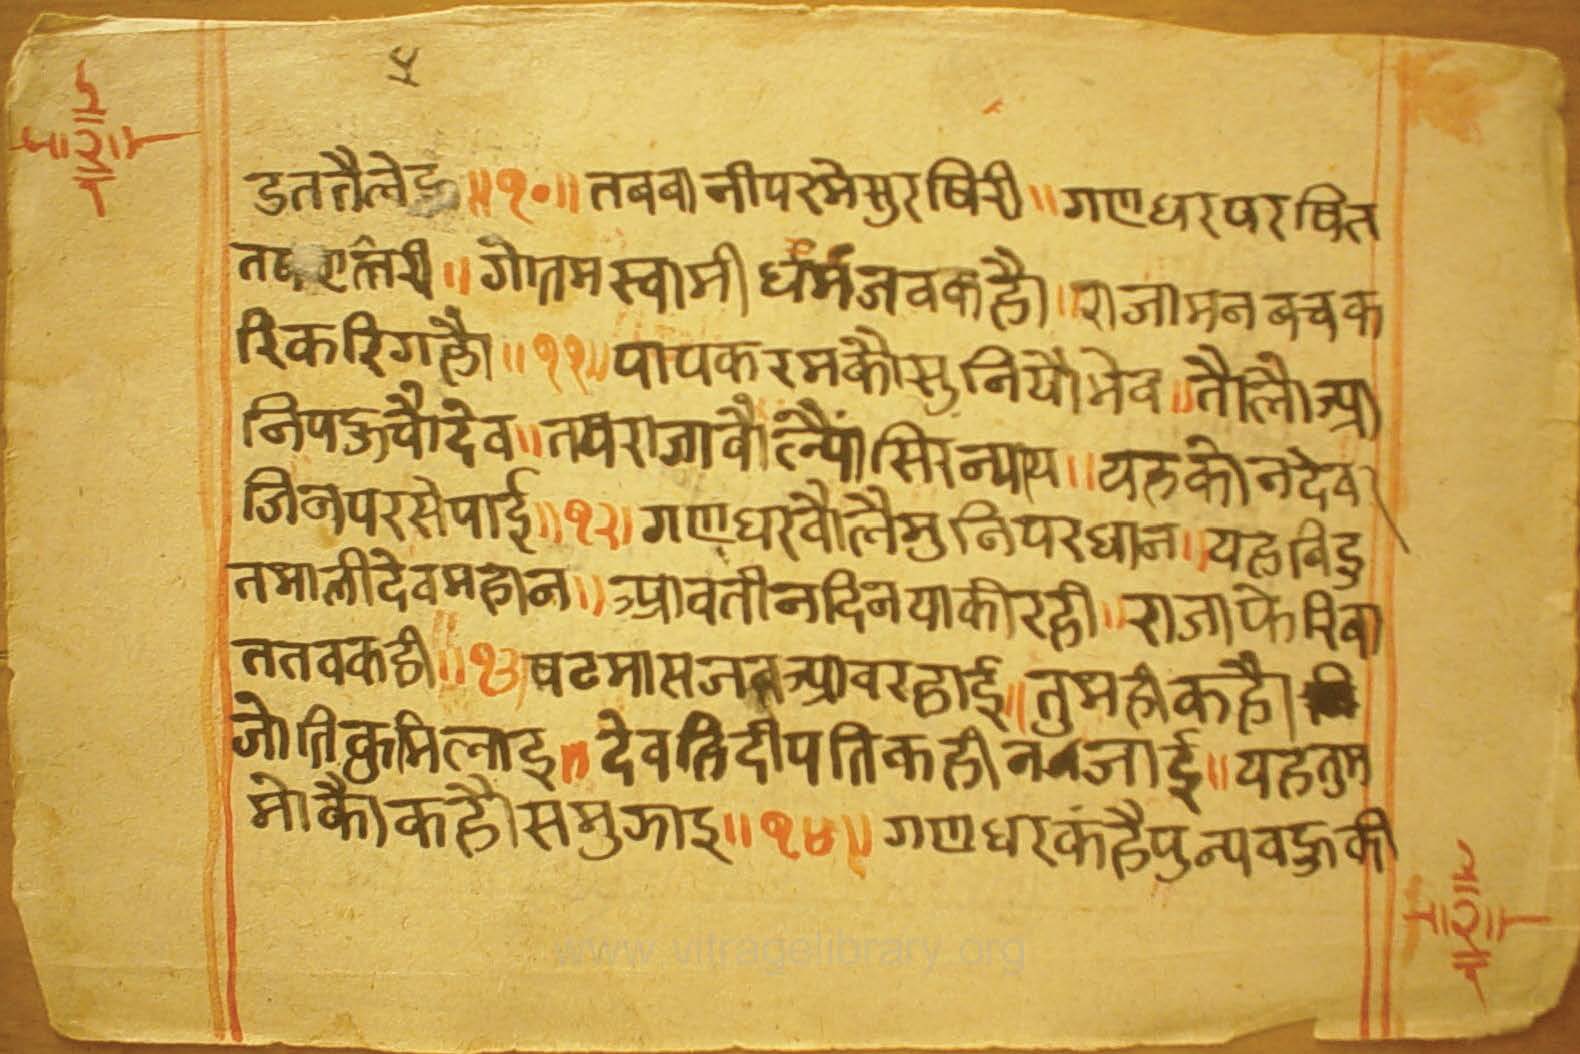 डततैलेइ ॥१०॥ तबवानीपरमेसुरषिरी ॥ गणधरपरषित
॥ गोतमस्वामी धर्मजवकहै ॥ राजामनबचक
रिकरिगहै ॥११॥ पापकरमकौसुनियौभेव ॥ तौलौआ
निपऊचौदेव ॥ तबराजा सिरन्याय ॥ यहकोनदेव
जिनपरसेपाई ॥१२॥ गणधरवोलैमुनिपरधान ॥ यहविदु
तमालीदेवमहान ॥ आवतीनदिनयाकीरही ॥ राजाफेरिबा
ततवकही ॥१३॥ षटमासजबआवरहाई ॥ तुमहीकहै।
जोतिकुमिलाइ ॥ देवतिदीपतिकहीनजाई ॥ यहतुम
मोकौकहौसमुझाइ ॥१४॥ गणधरकहैपुन्यवऊकी
www.vitragelibrary.org